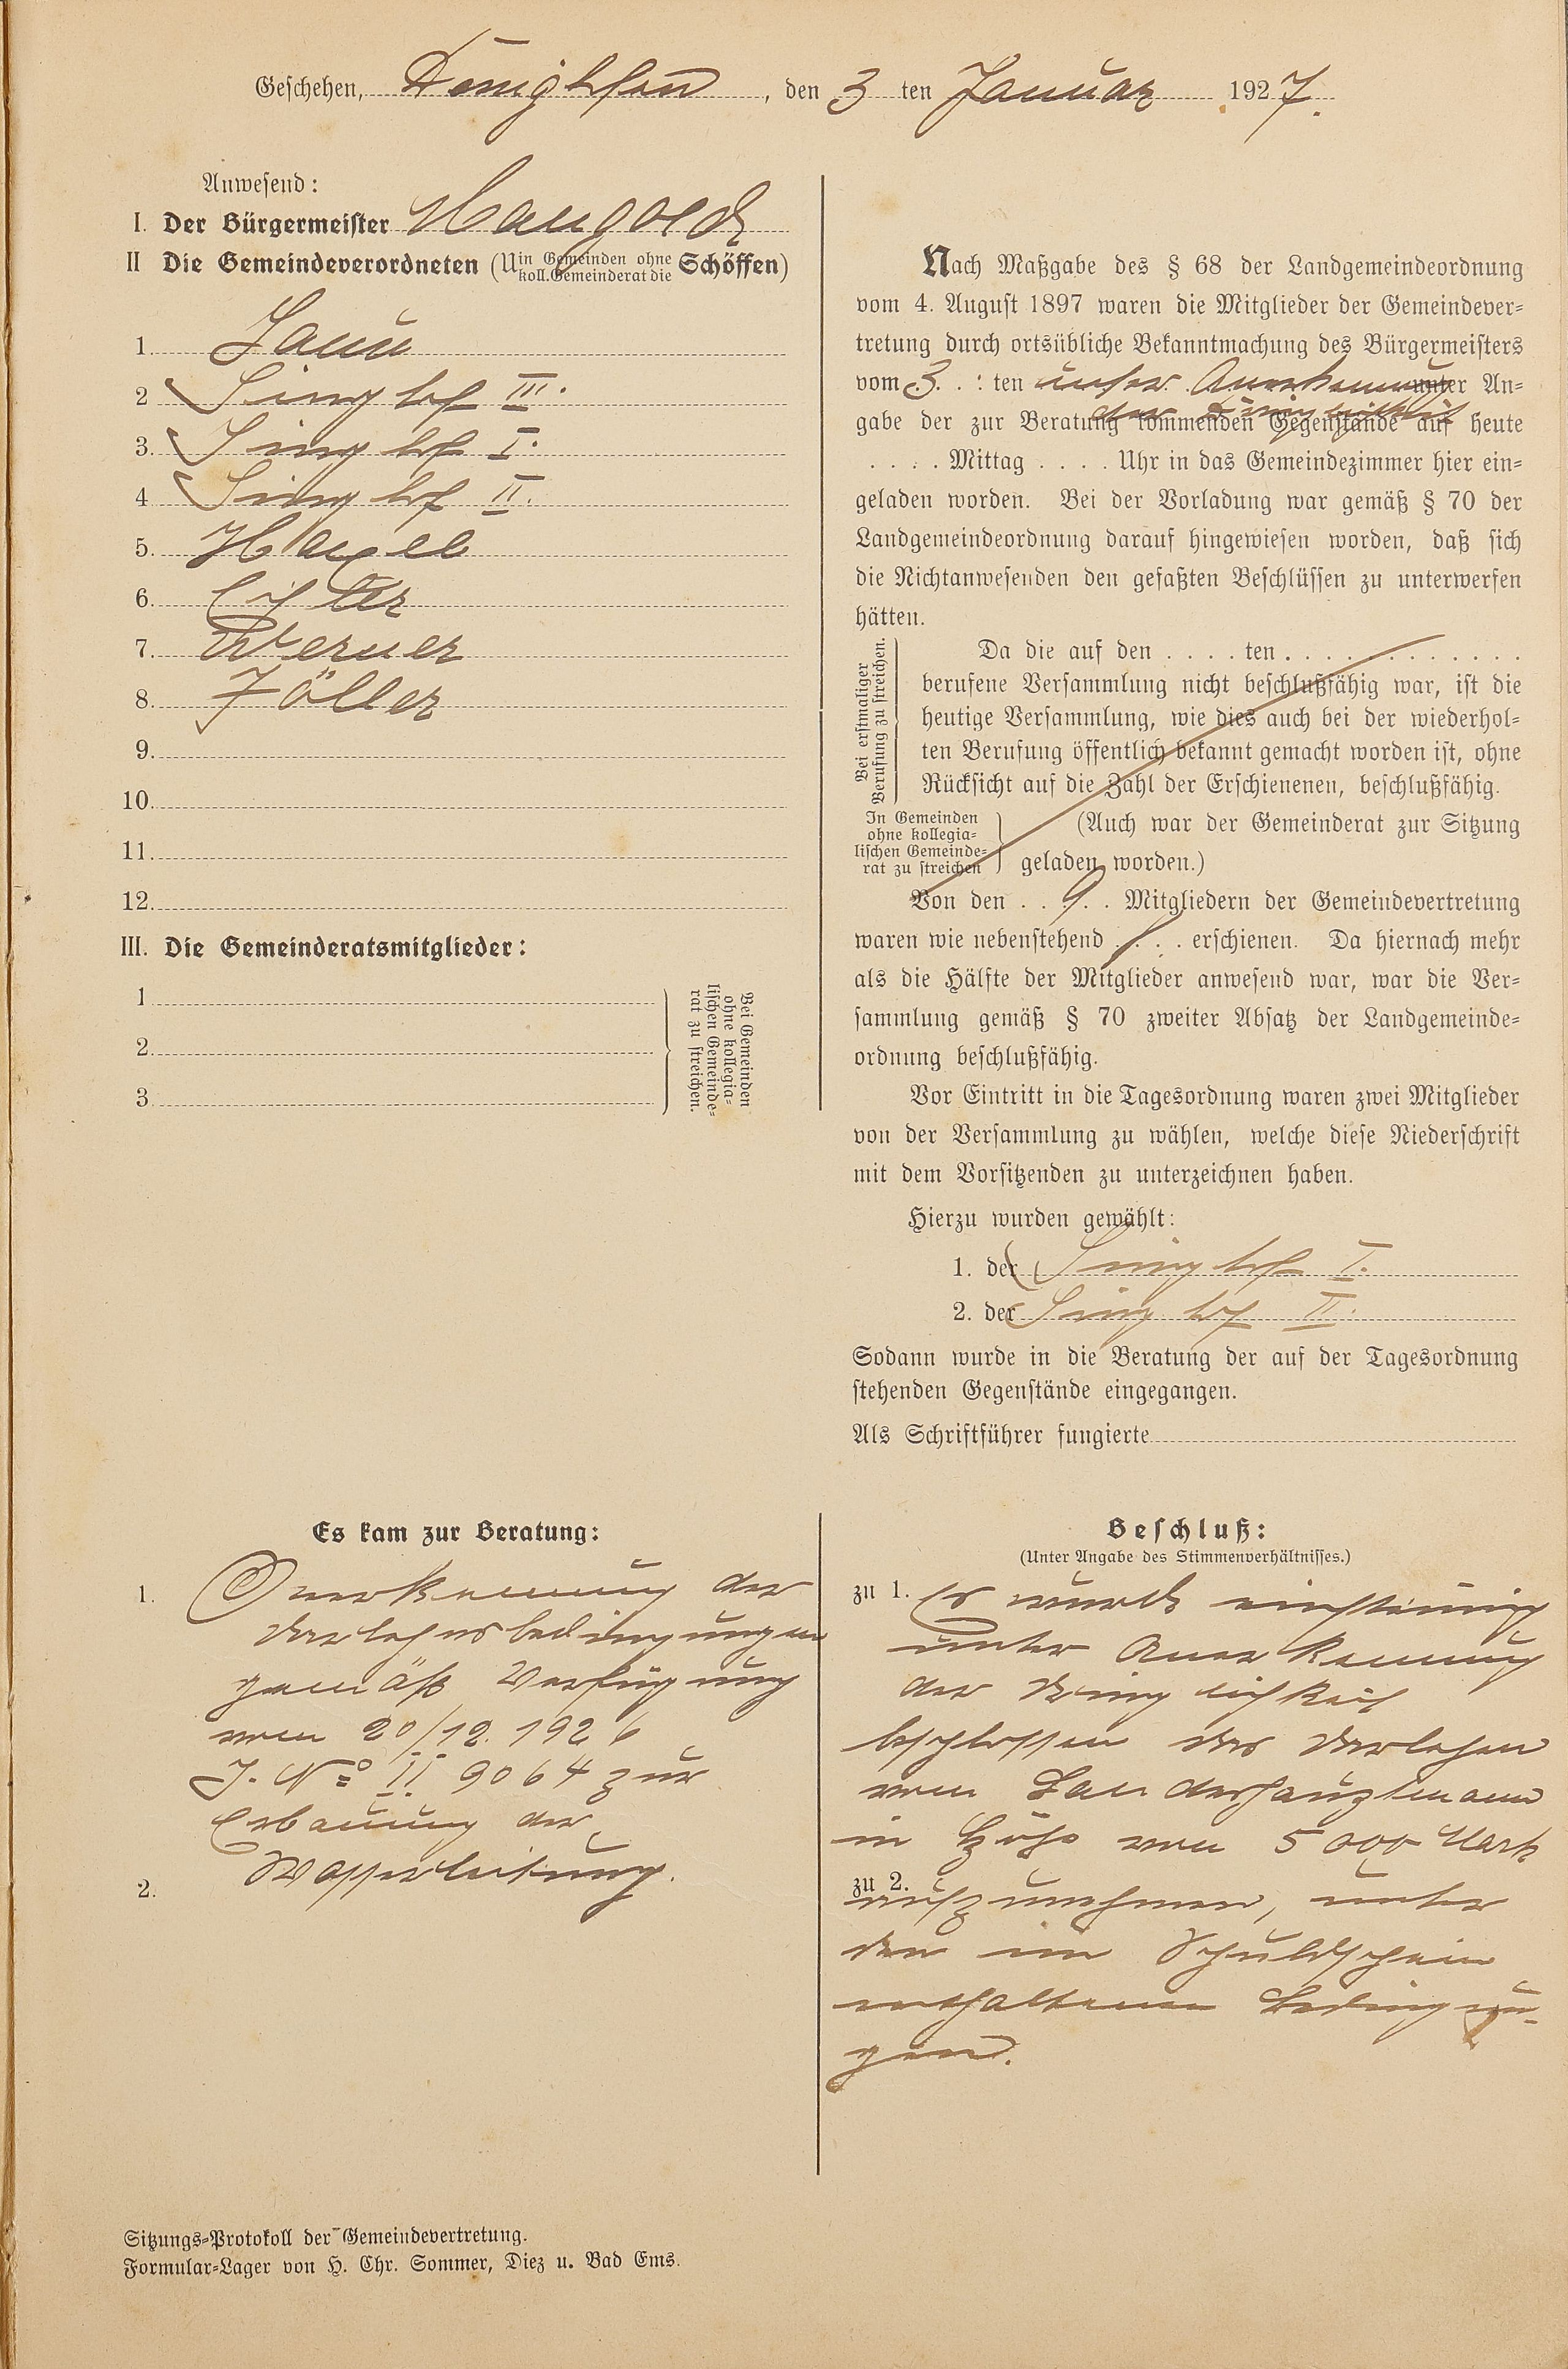 Geschehen, Dönighofen, den 3 ten Januar 1927.
Anwesend:
I. Der Bürgermeister Mangold
II Die Gemeindeverordneten (U in Gemeinden ohne koll. Gemeinderat die Schöffen)
1.
2 Singhof III.
3. Singhof I.
4 Singhof II.
5.
6.
7. Werner
8. Föller
9.
10.
11.
12.
III. Die Gemeinderatsmitglieder:
1
2.
3.
Bei Gemeinden
ohne kollegia-
lischen Gemeinde-
rat zu streichen.
Nach Maßgabe des § 68 der Landgemeindeordnung
vom 4. August 1897 waren die Mitglieder der Gemeindever-
tretung durch ortsübliche Bekanntmachung des Bürgermeisters
vom 3. . : ten unter Anerkennung unter An-
der Dringlichkeit
gabe der zur Beratung kommenden Gegenstände auf heute
. . . . Mittag . . . . Uhr in das Gemeindezimmer hier ein-
geladen worden. Bei der Vorladung war gemäß § 70 der
Landgemeindeordnung darauf hingewiesen worden, daß sich
die Nichtanwesenden den gefaßten Beschlüssen zu unterwerfen
hätten.
Bei erstmaliger
Berufung zu streichen.
Da die auf den . . . . ten . . . . . . . . . . . .
berufene Versammlung nicht beschlußfähig war, ist die
heutige Versammlung, wie dies auch bei der wiederhol-
ten Berufung öffentlich bekannt gemacht worden ist, ohne
Rücksicht auf die Zahl der Erschienenen, beschlußfähig.
In Gemeinden
ohne kollegia-
lischen Gemeinde-
rat zu streichen
(Auch war der Gemeinderat zur Sitzung
geladen worden.)
Von den . . 9 . . Mitgliedern der Gemeindevertretung
waren wie nebenstehend . . . . erschienen. Da hiernach mehr
als die Hälfte der Mitglieder anwesend war, war die Ver-
sammlung gemäß § 70 zweiter Absatz der Landgemeinde-
ordnung beschlußfähig.
Vor Eintritt in die Tagesordnung waren zwei Mitglieder
von der Versammlung zu wählen, welche diese Niederschrift
mit dem Vorsitzenden zu unterzeichnen haben.
Hierzu wurden gewählt:
1. der Singhof I.
2. der Singhof II.
Sodann wurde in die Beratung der auf der Tagesordnung
stehenden Gegenstände eingegangen.
Als Schriftführer fungierte
Es kam zur Beratung:
1. Anerkennung der
Darlehnsbedingungen
gemäß Verfügung
vom 20/12. 1926
J. No II 9064 zur
Erbauung der
Wasserleitung.
2.
Beschluß:
(Unter Angabe des Stimmenverhältnisses.)
zu 1. Es wurde einstimmig
unter Anerkennung
der Dringlichkeit
beschlossen das Darlehen
vom Landeshauptmann
in Höhe von 5000 Mark
zu 2.
aufzunehmen, unter
den im Schuldschein
enthaltenen Bedingun-
gen.
Sitzungs-Protokoll der Gemeindevertretung.
Formular-Lager von H. Chr. Sommer, Diez u. Bad Ems.